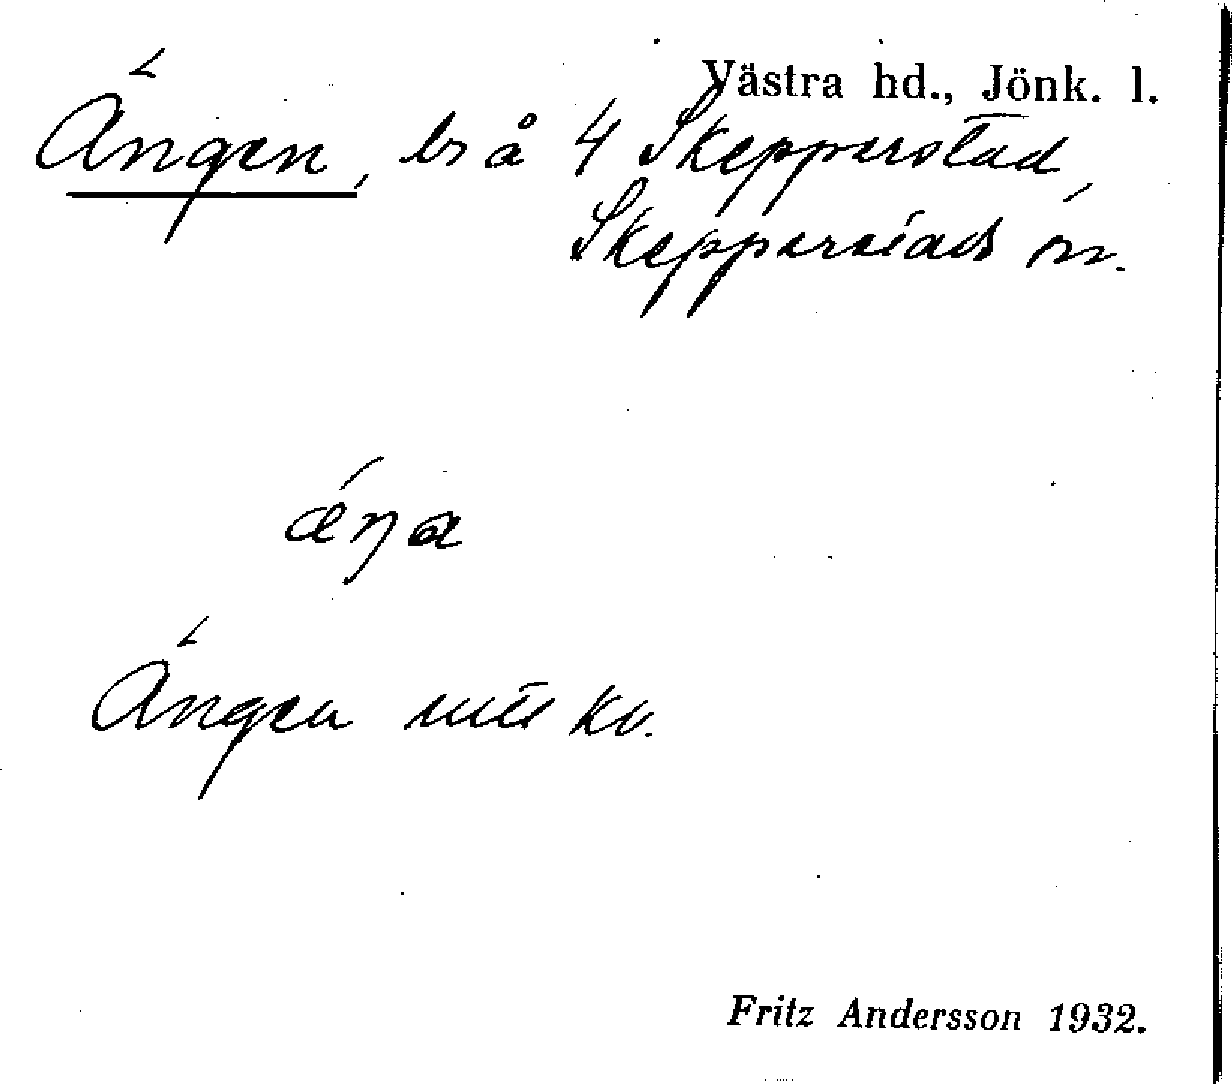 Västra hd., Jönk. l.
Ängen, ls å 4 Skepparstad,
Skepparslads sn.
ǽŋa
Ängen mtl kv.
Fritz Andersson 1932.